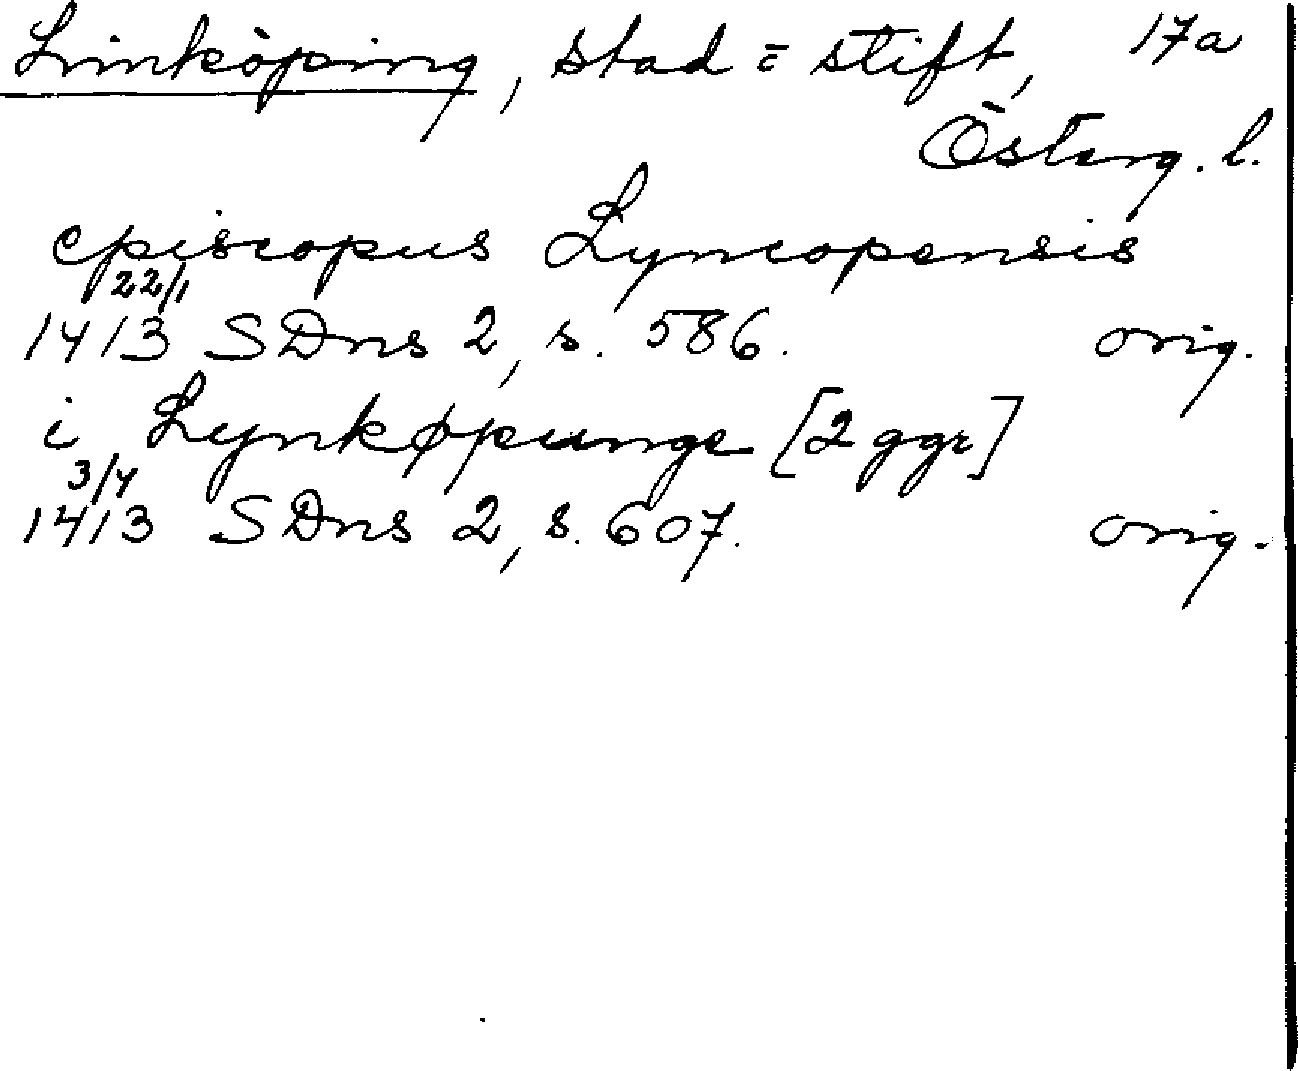 Linköping, stad = stift, 17a
Österg. l.
episcopus Lyncopensis
22/1
1413 SDns 2, s. 586. orig.
i Lynkøpunge [2 ggr]
3/4
1413 SDns 2, s. 607. orig.